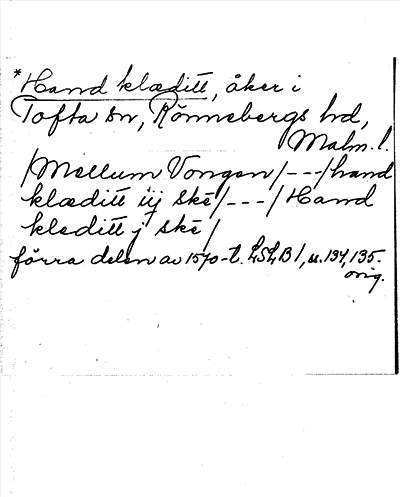 *Hand klæditt, åker i
Tofta sn, Rönnebergs hd,
Malm. l.
/Mellum Vongen/---/hand
klæditt iij ske/---/Hand
kleditt j ske/
förra delen av 1570-t. LSLB 1, s. 134, 135.
orig.